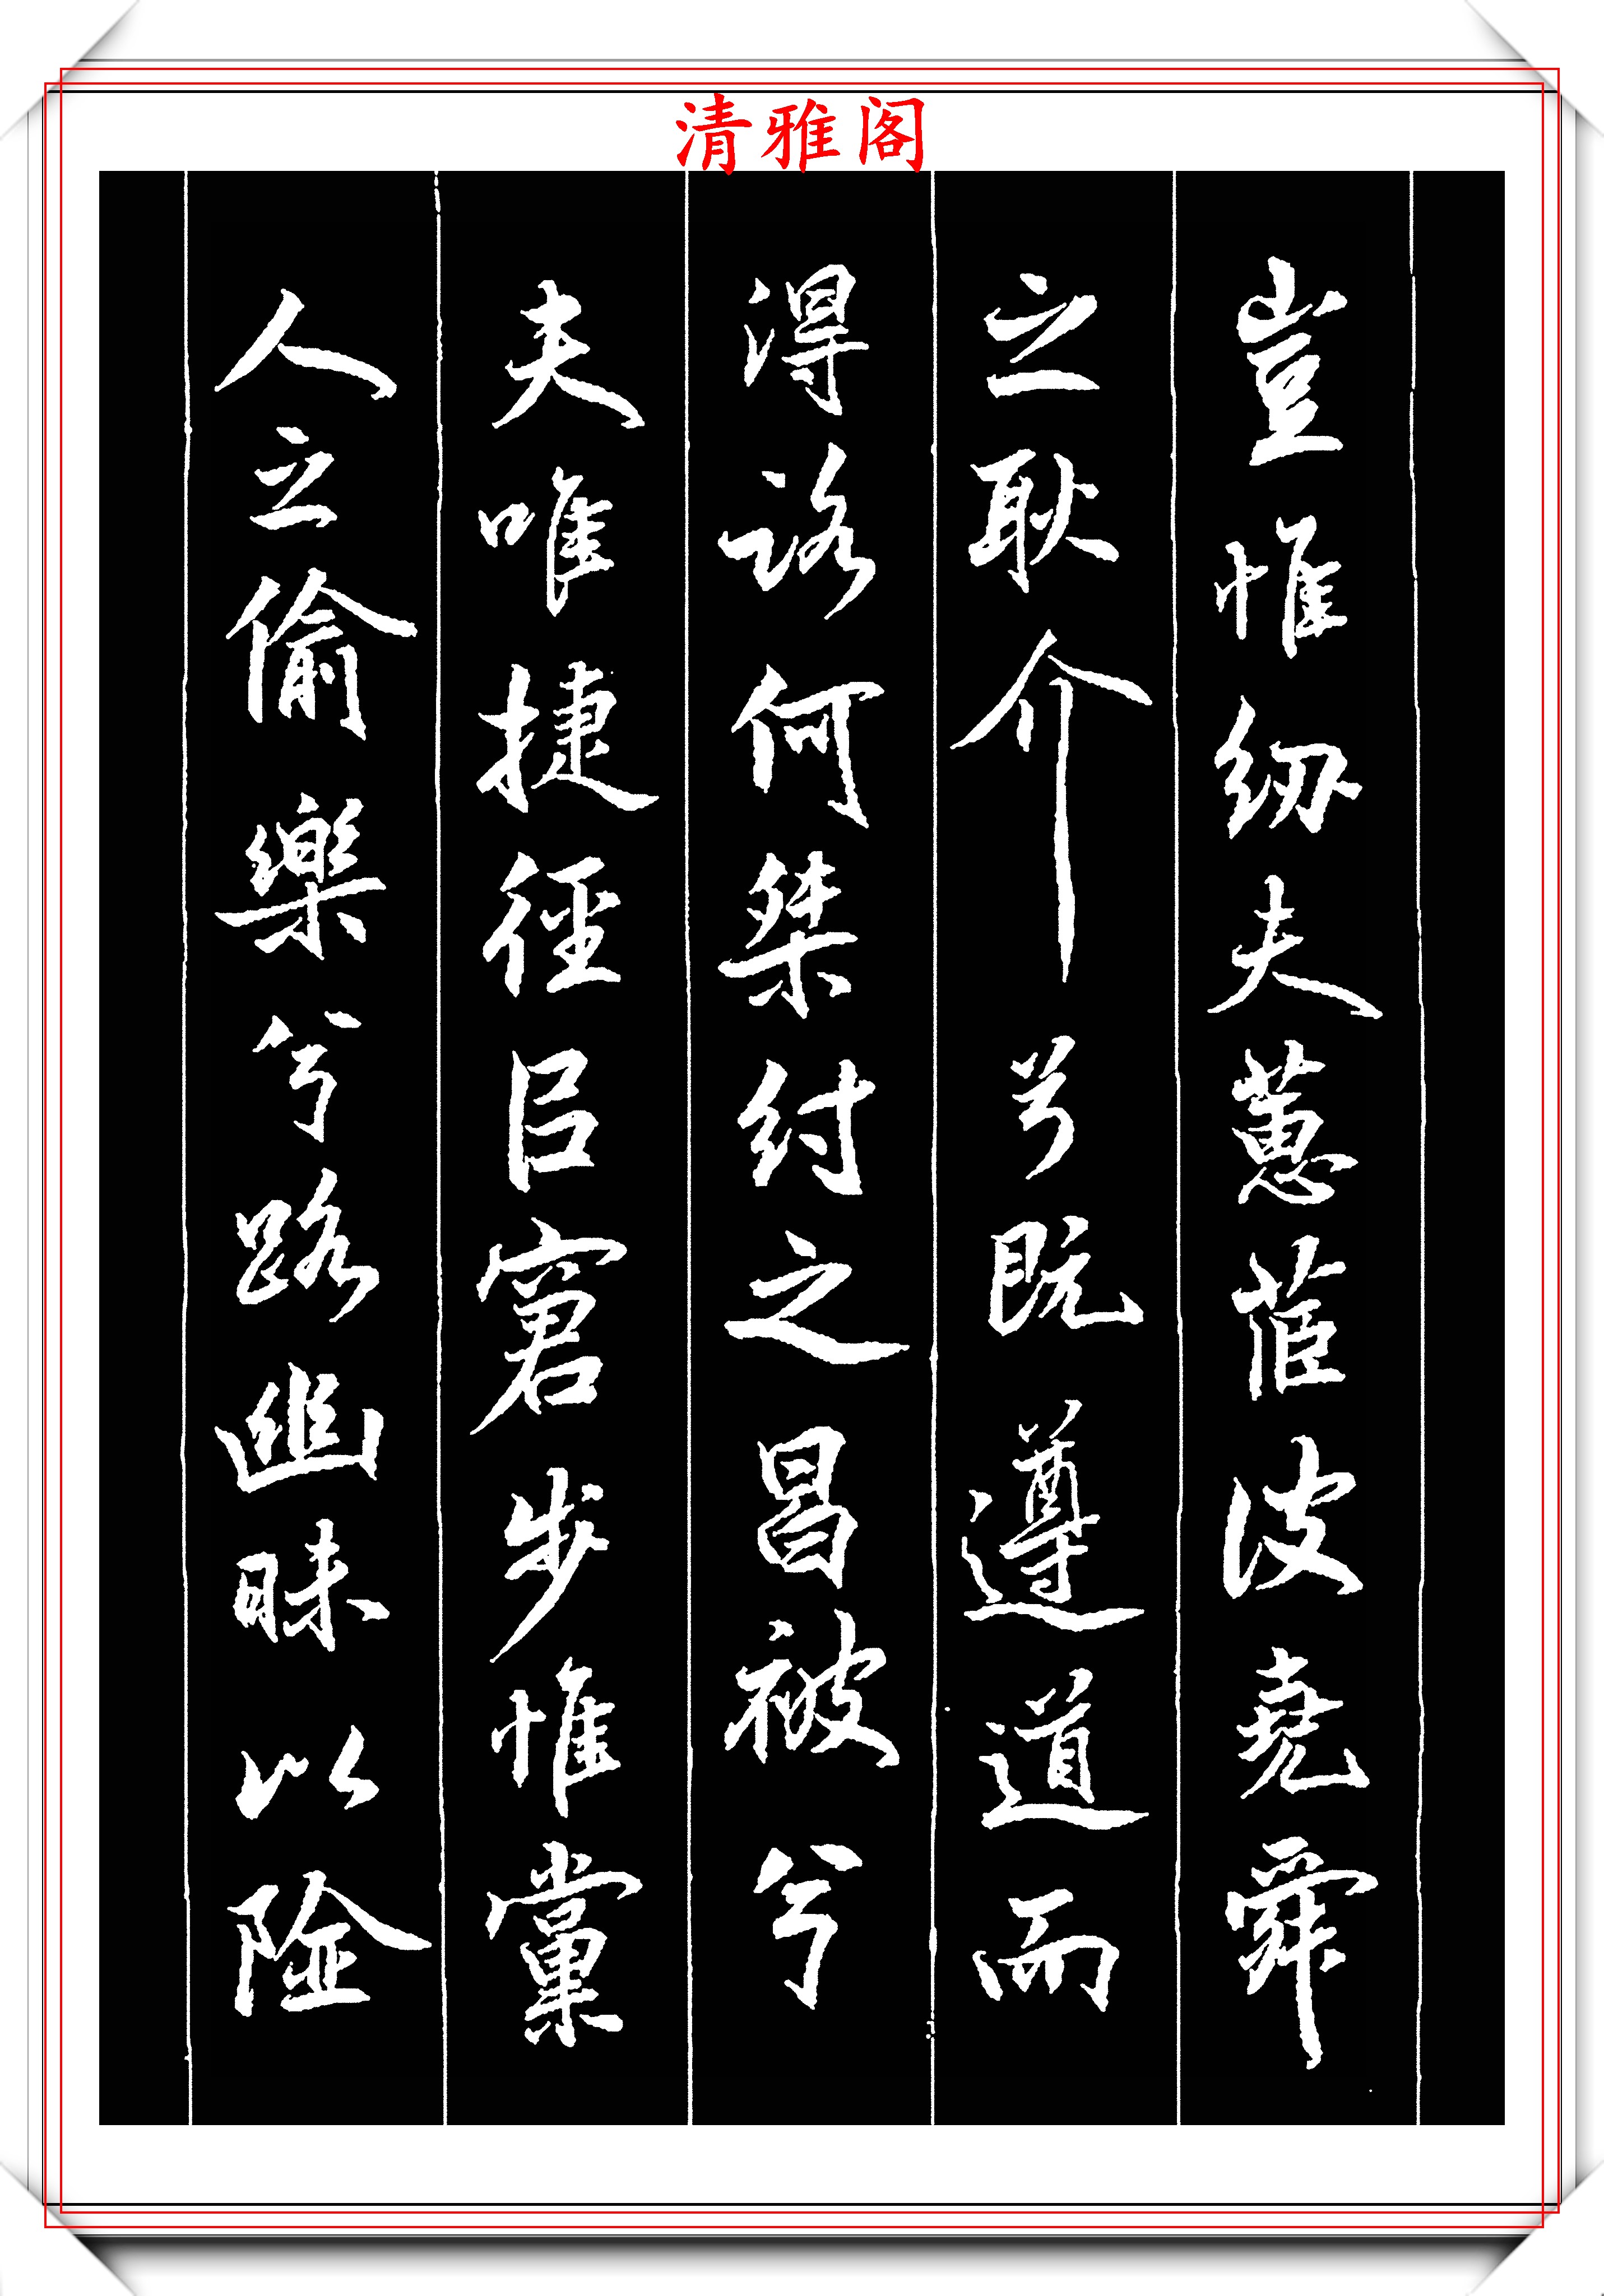 清雅阁
豈惟紉夫蕙茝彼堯舜
之耿介兮既遵道而
得路何桀紂之昌被兮
夫唯捷徑㠯窘步惟黨
人之偷樂兮路幽昧以險